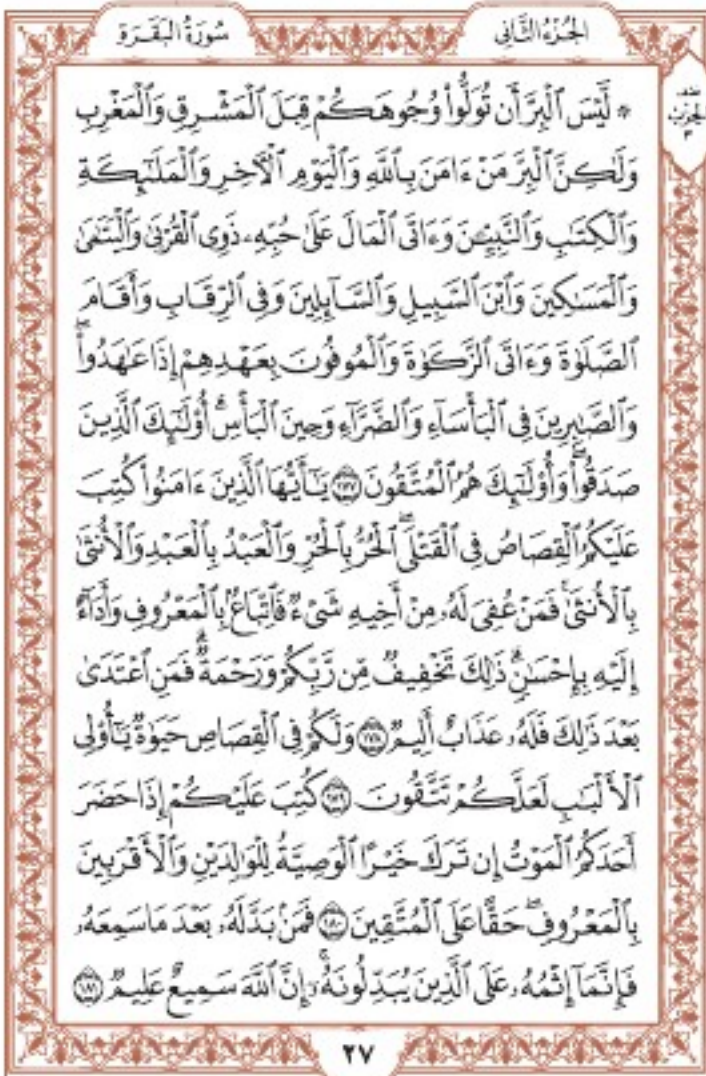 سُورَةُ الْبَقَرَةِ
الجُزْءُ الثَّانِي
نصف
الحزب
٣
* لَّيْسَ ٱلْبِرَّ أَن تُوَلُّوا۟ وُجُوهَكُمْ قِبَلَ ٱلْمَشْرِقِ وَٱلْمَغْرِبِ
وَلَـٰكِنَّ ٱلْبِرَّ مَنْ ءَامَنَ بِٱللَّهِ وَٱلْيَوْمِ ٱلْـَٔاخِرِ وَٱلْمَلَـٰٓئِكَةِ
وَٱلْكِتَـٰبِ وَٱلنَّبِيِّـۧنَ وَءَاتَى ٱلْمَالَ عَلَىٰ حُبِّهِۦ ذَوِى ٱلْقُرْبَىٰ وَٱلْيَتَـٰمَىٰ
وَٱلْمَسَـٰكِينَ وَٱبْنَ ٱلسَّبِيلِ وَٱلسَّآئِلِينَ وَفِى ٱلرِّقَابِ وَأَقَامَ
ٱلصَّلَوٰةَ وَءَاتَى ٱلزَّكَوٰةَ وَٱلْمُوفُونَ بِعَهْدِهِمْ إِذَا عَـٰهَدُوا۟ۖ
وَٱلصَّـٰبِرِينَ فِى ٱلْبَأْسَآءِ وَٱلضَّرَّآءِ وَحِينَ ٱلْبَأْسِۗ أُو۟لَـٰٓئِكَ ٱلَّذِينَ
صَدَقُوا۟ۖ وَأُو۟لَـٰٓئِكَ هُمُ ٱلْمُتَّقُونَ ١٧٧ يَـٰٓأَيُّهَا ٱلَّذِينَ ءَامَنُوا۟ كُتِبَ
عَلَيْكُمُ ٱلْقِصَاصُ فِى ٱلْقَتْلَىۖ ٱلْحُرُّ بِٱلْحُرِّ وَٱلْعَبْدُ بِٱلْعَبْدِ وَٱلْأُنثَىٰ
بِٱلْأُنثَىٰۚ فَمَنْ عُفِىَ لَهُۥ مِنْ أَخِيهِ شَىْءٌ فَٱتِّبَاعٌۢ بِٱلْمَعْرُوفِ وَأَدَآءٌ
إِلَيْهِ بِإِحْسَـٰنٍۗ ذَٰلِكَ تَخْفِيفٌ مِّن رَّبِّكُمْ وَرَحْمَةٌۗ فَمَنِ ٱعْتَدَىٰ
بَعْدَ ذَٰلِكَ فَلَهُۥ عَذَابٌ أَلِيمٌ ١٧٨ وَلَكُمْ فِى ٱلْقِصَاصِ حَيَوٰةٌ يَـٰٓأُو۟لِى
ٱلْأَلْبَـٰبِ لَعَلَّكُمْ تَتَّقُونَ ١٧٩ كُتِبَ عَلَيْكُمْ إِذَا حَضَرَ
أَحَدَكُمُ ٱلْمَوْتُ إِن تَرَكَ خَيْرًا ٱلْوَصِيَّةُ لِلْوَٰلِدَيْنِ وَٱلْأَقْرَبِينَ
بِٱلْمَعْرُوفِۖ حَقًّا عَلَى ٱلْمُتَّقِينَ ١٨٠ فَمَنۢ بَدَّلَهُۥ بَعْدَ مَا سَمِعَهُۥ
فَإِنَّمَآ إِثْمُهُۥ عَلَى ٱلَّذِينَ يُبَدِّلُونَهُۥٓۚ إِنَّ ٱللَّهَ سَمِيعٌ عَلِيمٌ ١٨١
٢٧